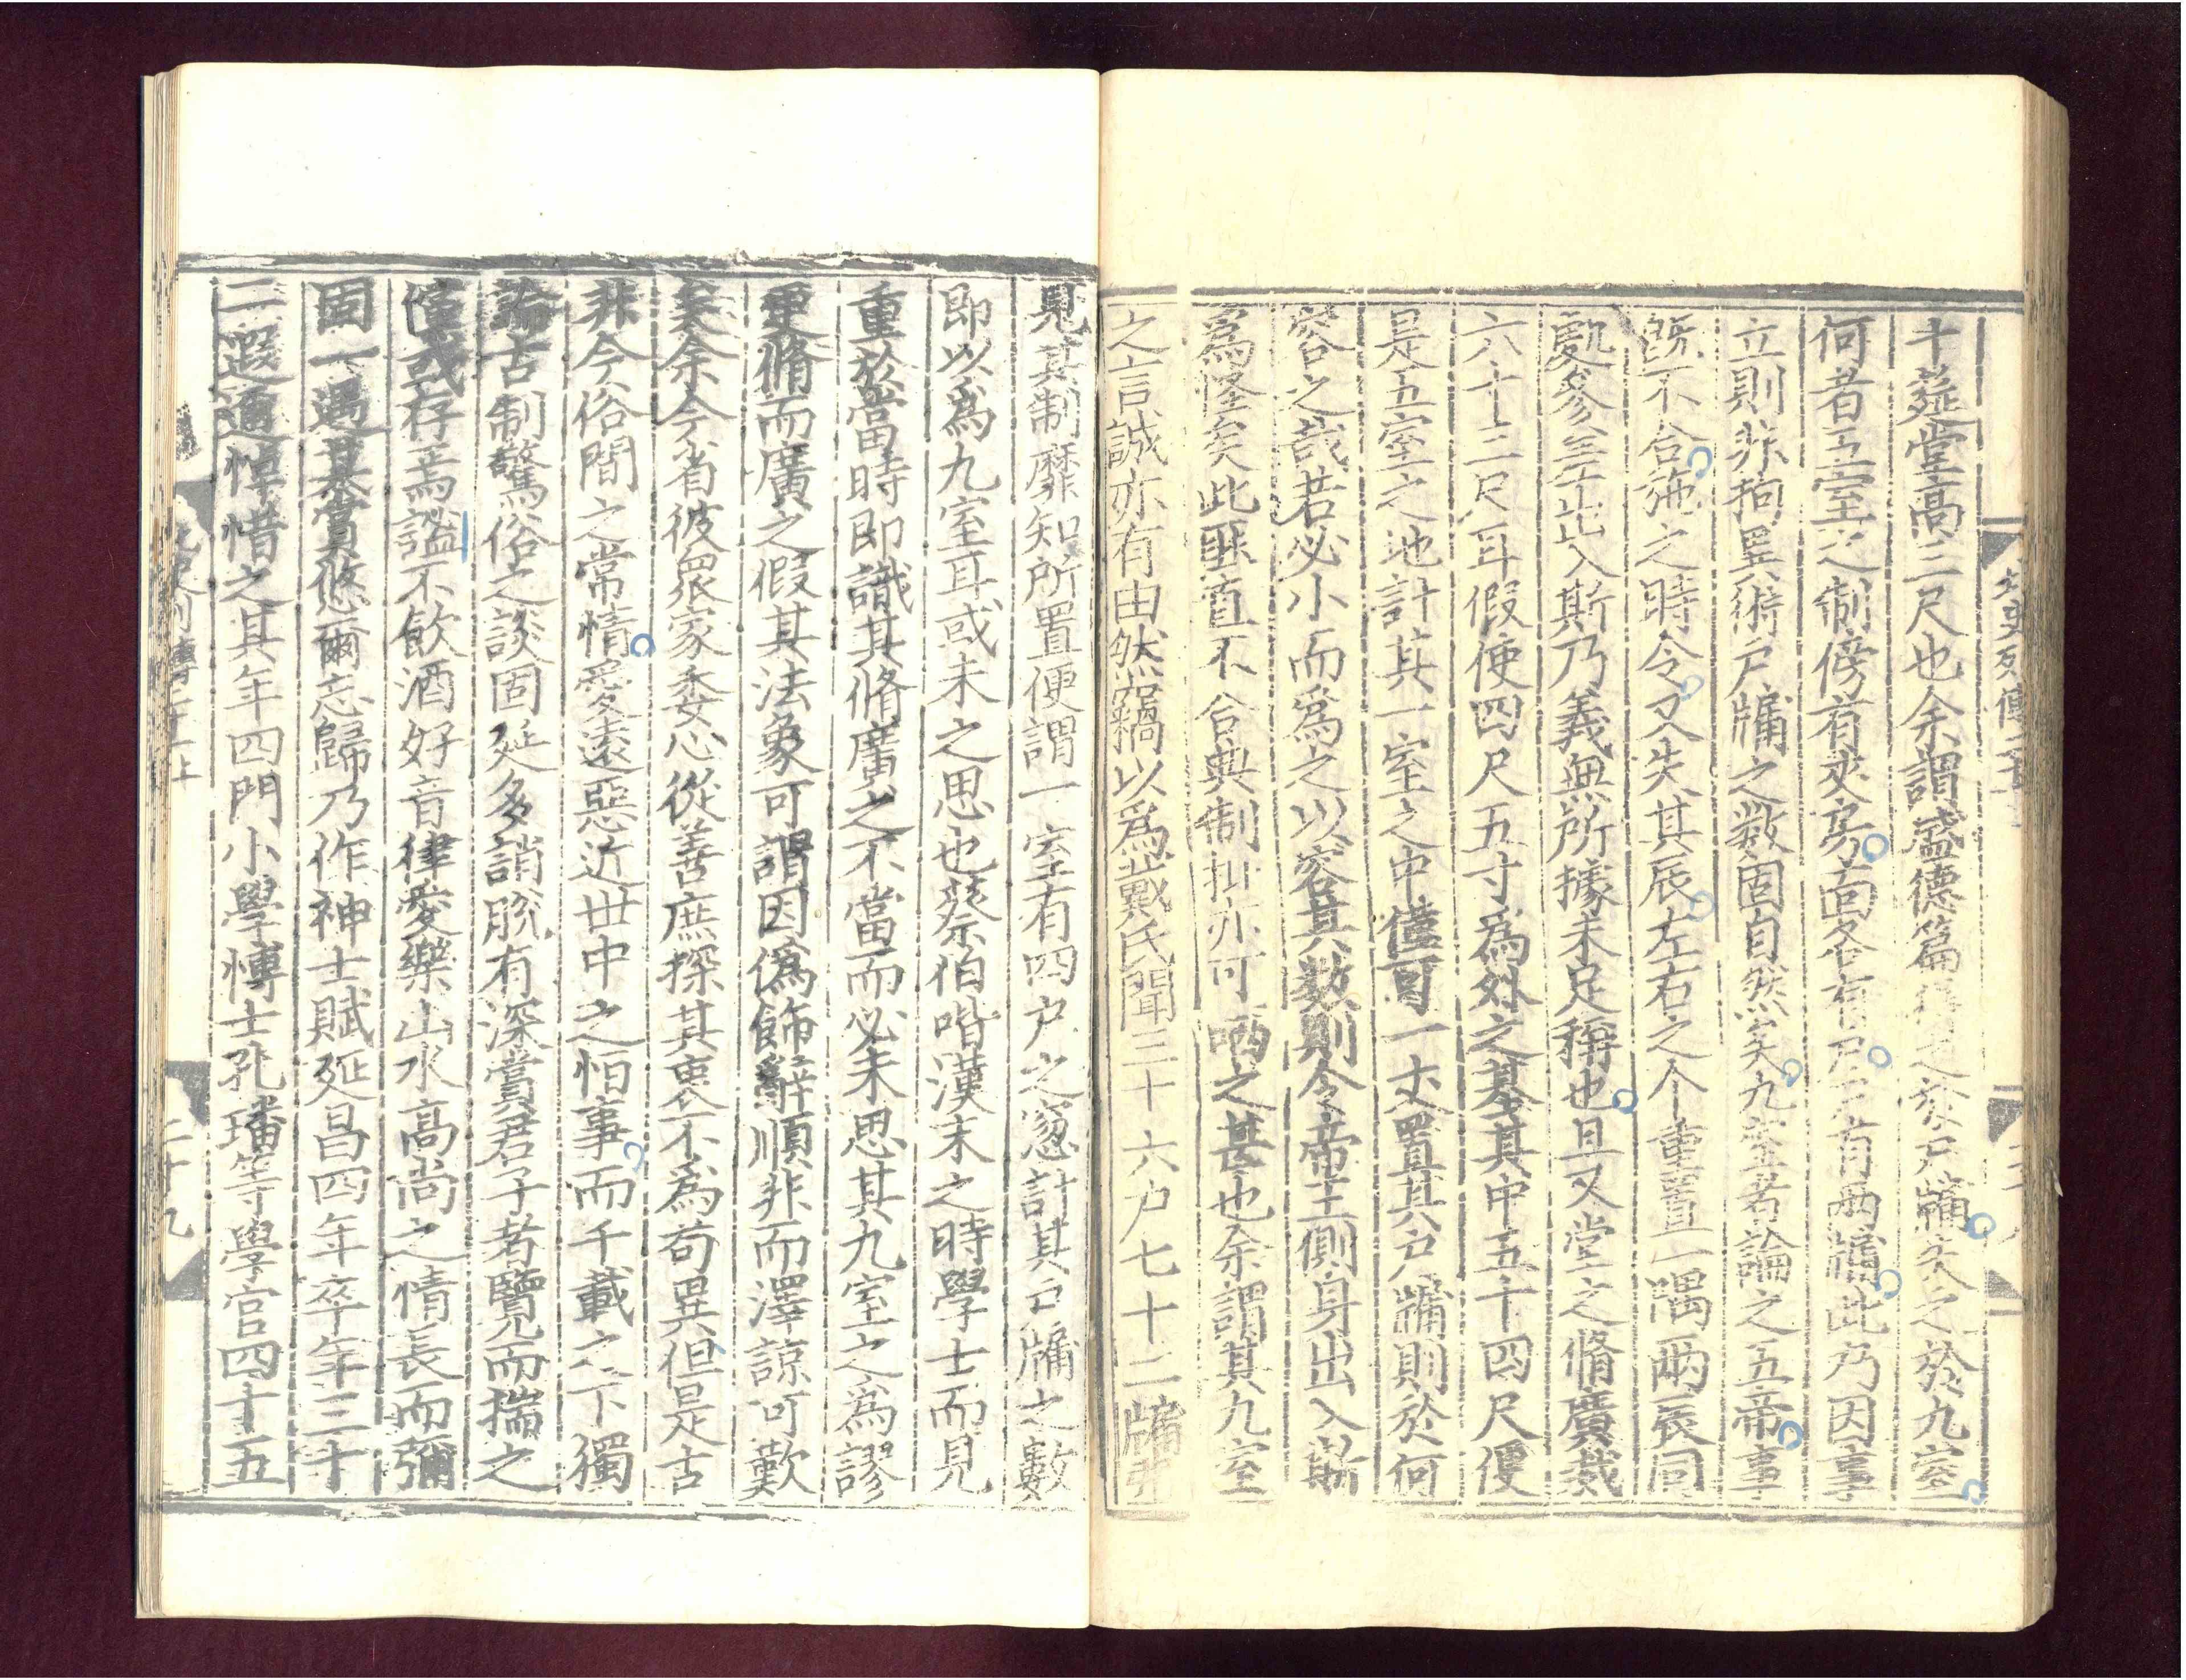 十筵堂高三尺也余謂盛德篇得之於戶牖失之於九室
何者五室之制傍有夾房面各有戶戶有兩牖此乃因事
立則非拘異術戶牖之數固自然矣九室者論之五帝事
旣不合施之時令又失其辰左右之个重置一隅兩辰同
處參差出入斯乃義無所據未足稱也且又堂之脩廣裁
六十三尺耳假使四尺五寸爲外之基其中五十四尺便
是五室之地計其一室之中僅可一丈置其戶牖則於何
容之哉若必小而爲之以容其數則令帝王側身出入斯
爲怪矣此匪直不合典制抑亦可哂之甚也余謂其九室
之言誠亦有由然竊以爲戴氏聞三十六戶七十二牖弗
見其制靡知所置便謂一室有四戶之窓計其戶牖之數
即以爲九室耳或未之思也蔡伯喈漢末之時學士而見
重於當時即識其脩廣之不當而必未思其九室之爲謬
更脩而廣之假其法象可謂因僞飾辭順非而澤諒可歎
矣余今省彼衆家委心從善庶探其衷不爲苟異但是古
非今俗間之常情愛遠惡近世中之恒事而千載之下獨
論古制驚俗之談固延多誚脫有深賞君子者覽而揣之
儻或存焉謐不飲酒好音律愛樂山水高尚之情長而彌
固一遇其賞悠爾忘歸乃作神士賦延昌四年卒年三十
二遐邇悼惜之其年四門小學博士孔璠等學官四十五
二十九